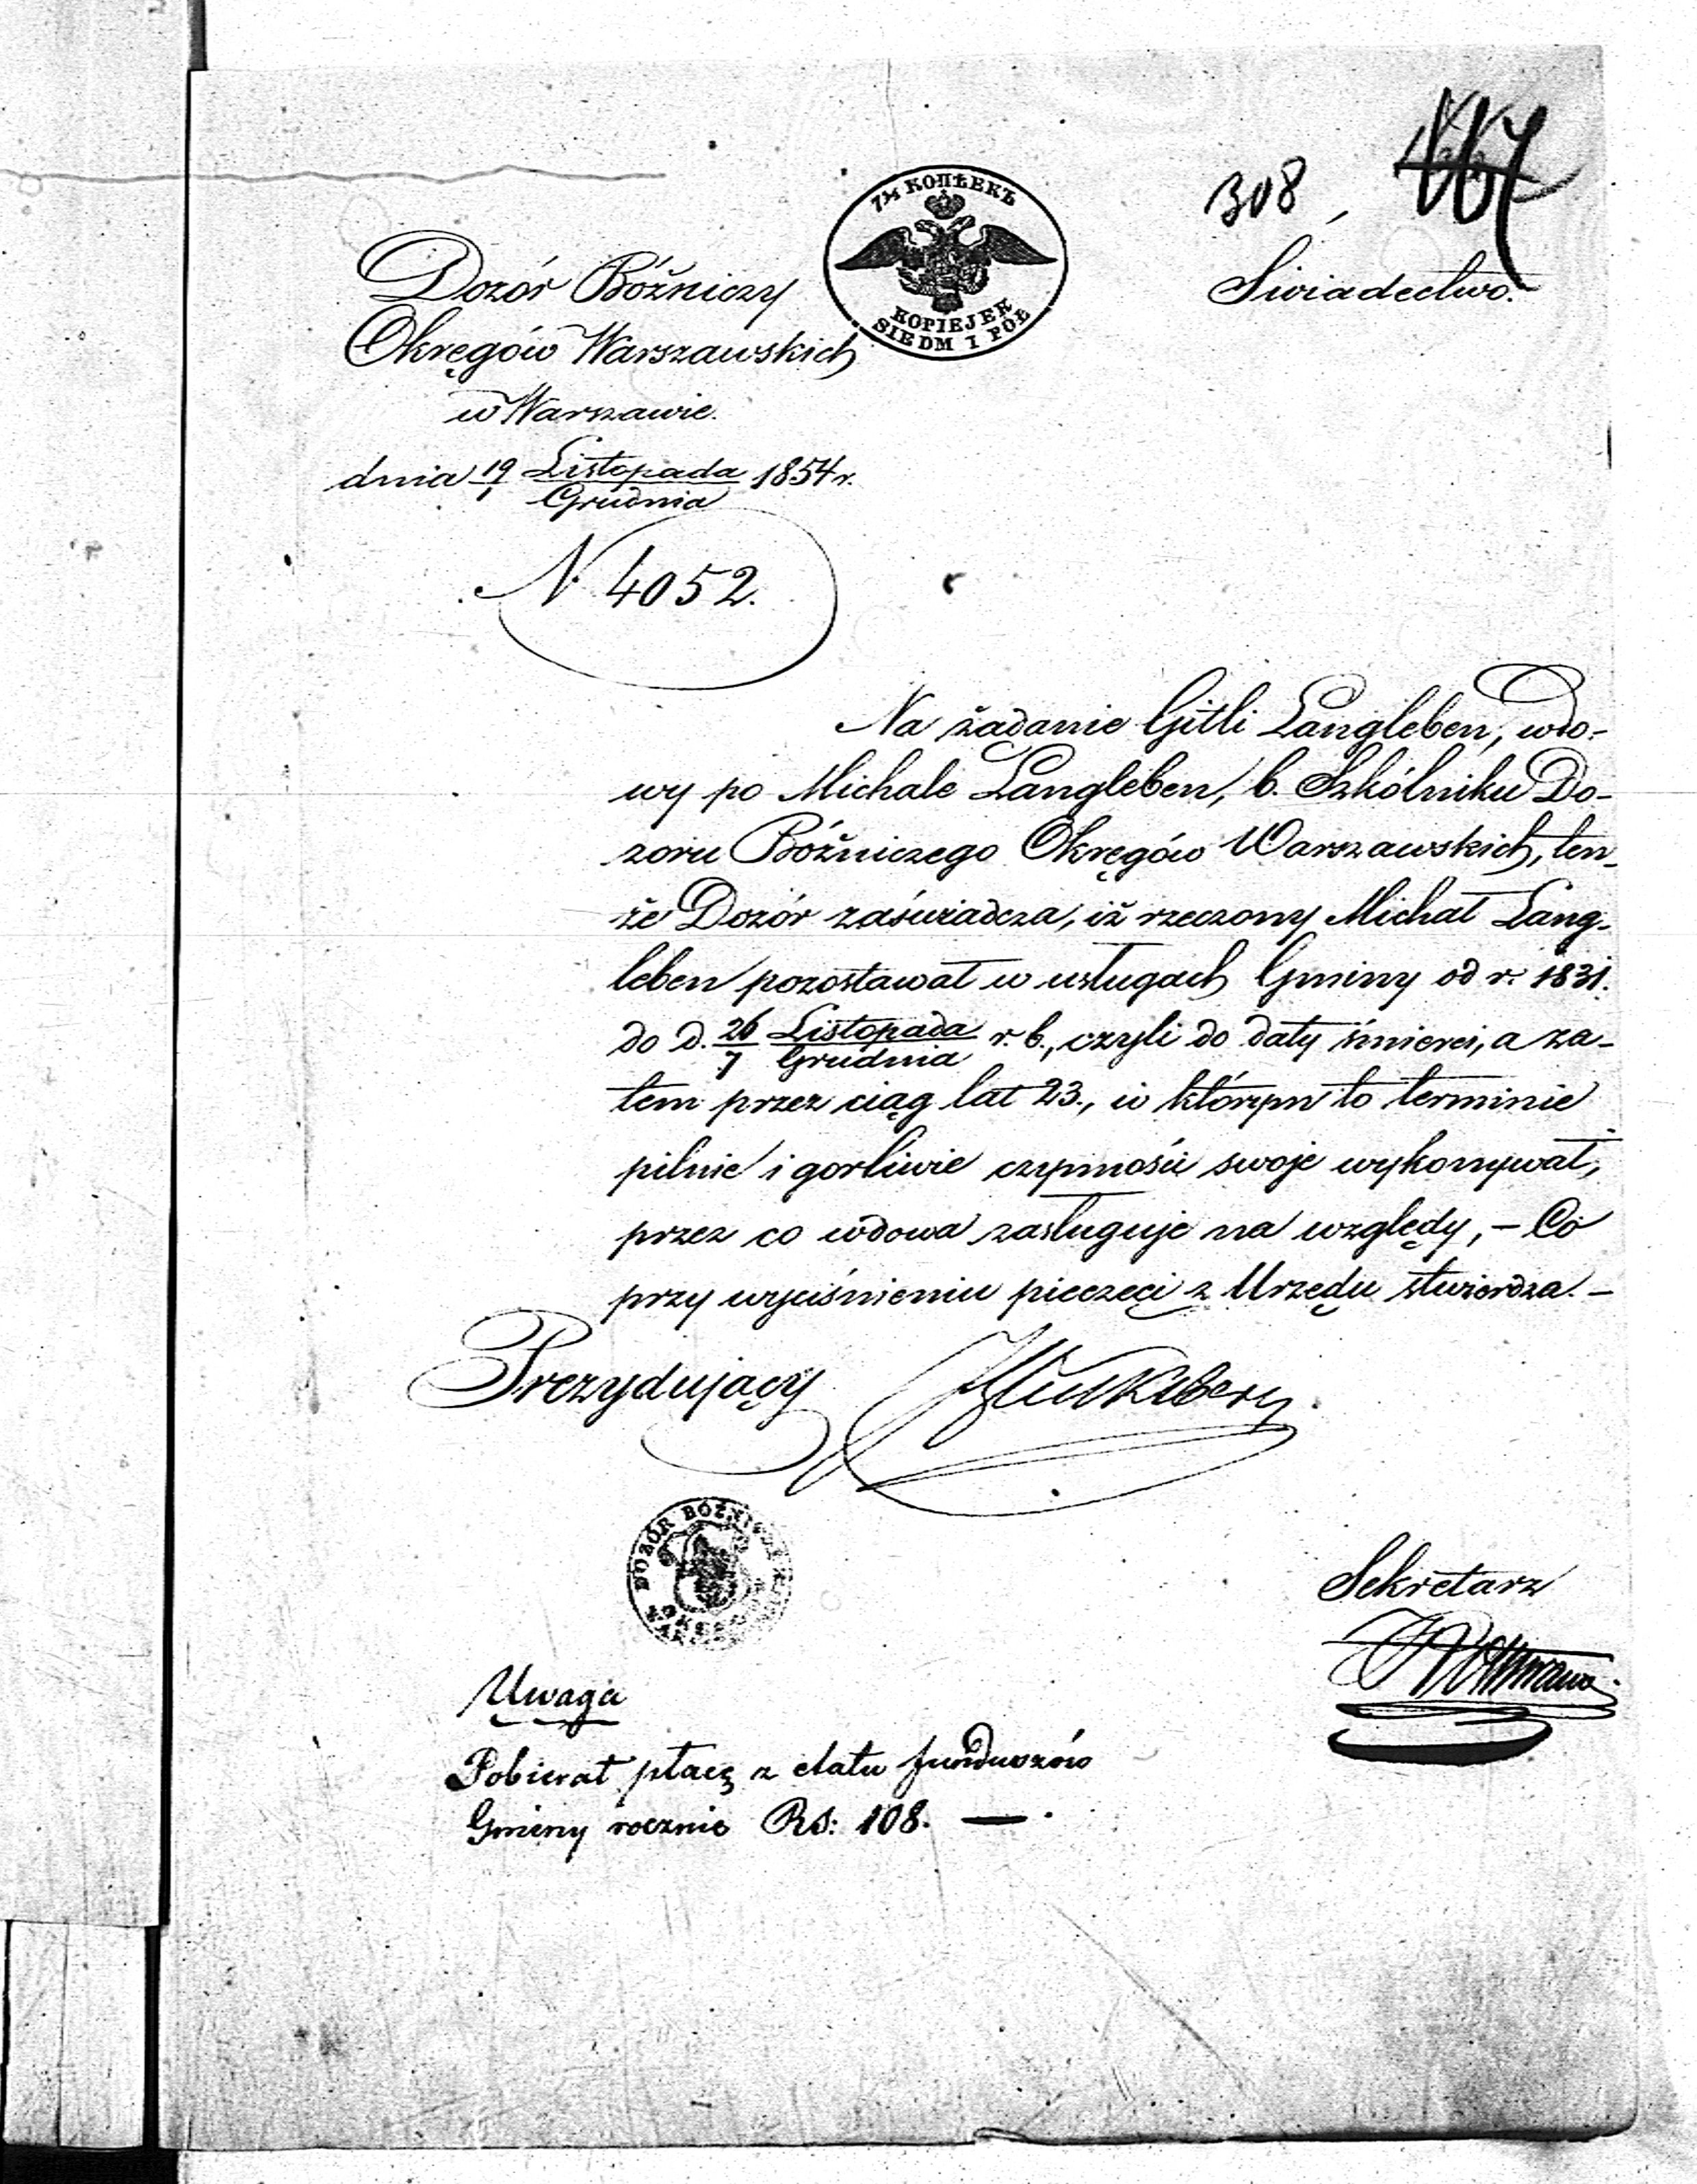 308
7½ КОПѢЕКЪ
KOPIEJEK
SIEDM I PÓŁ
Świadectwo.
Dozór Bóżniczy
Okręgów Warszawskich
w Warszawie.
dnia 19/1 Listopada/Grudnia 1854 r.
N. 4052.
Na żadanie Gitli Langleben, wdo-
wy po Michale Langleben, b. Szkólniku Do-
zoru Bóżniczego Okręgów Warszawskich, ten-
że Dozór zaświadcza, iż rzeczony Michał Lang-
leben pozostawał w usługach Gminy od r. 1831.
do d. 26/7 Listopada/Grudnia r. b., czyli do daty śmierci, a za-
tem przez ciąg lat 23., w którym to terminie
pilnie i gorliwie czynności swoje wykonywał,
przez co wdowa zasługuje na względy, – Co
przy wyciśnieniu pieczęci z Urzędu stwierdza. –
Prezydujący
DOZÓR BÓŻNICZY
Sekretarz
Uwaga
Pobierał płacę z etatu funduszów
Gminy rocznie Rs: 108. —